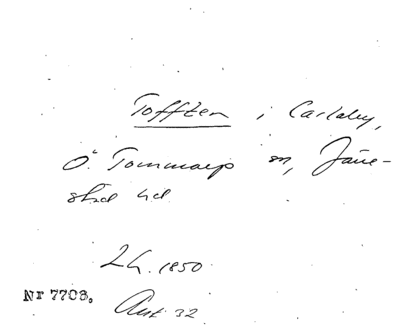 Tofften i Carlaby,
Ö. Tommarp sn, Järre-
stad hd
Lh. 1850
Nr 7703.
Akt 32